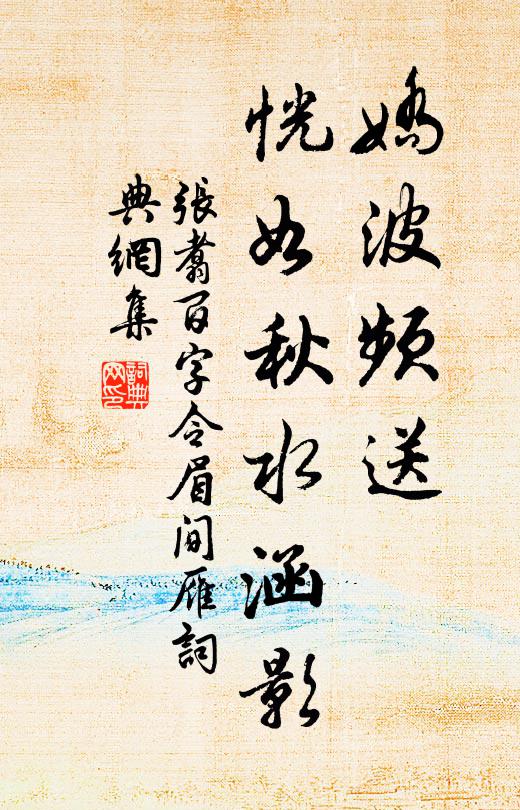 嬌波頻送
恍如秋水涵影
張翥百字令眉間雁詞
典網集
詞典
网印